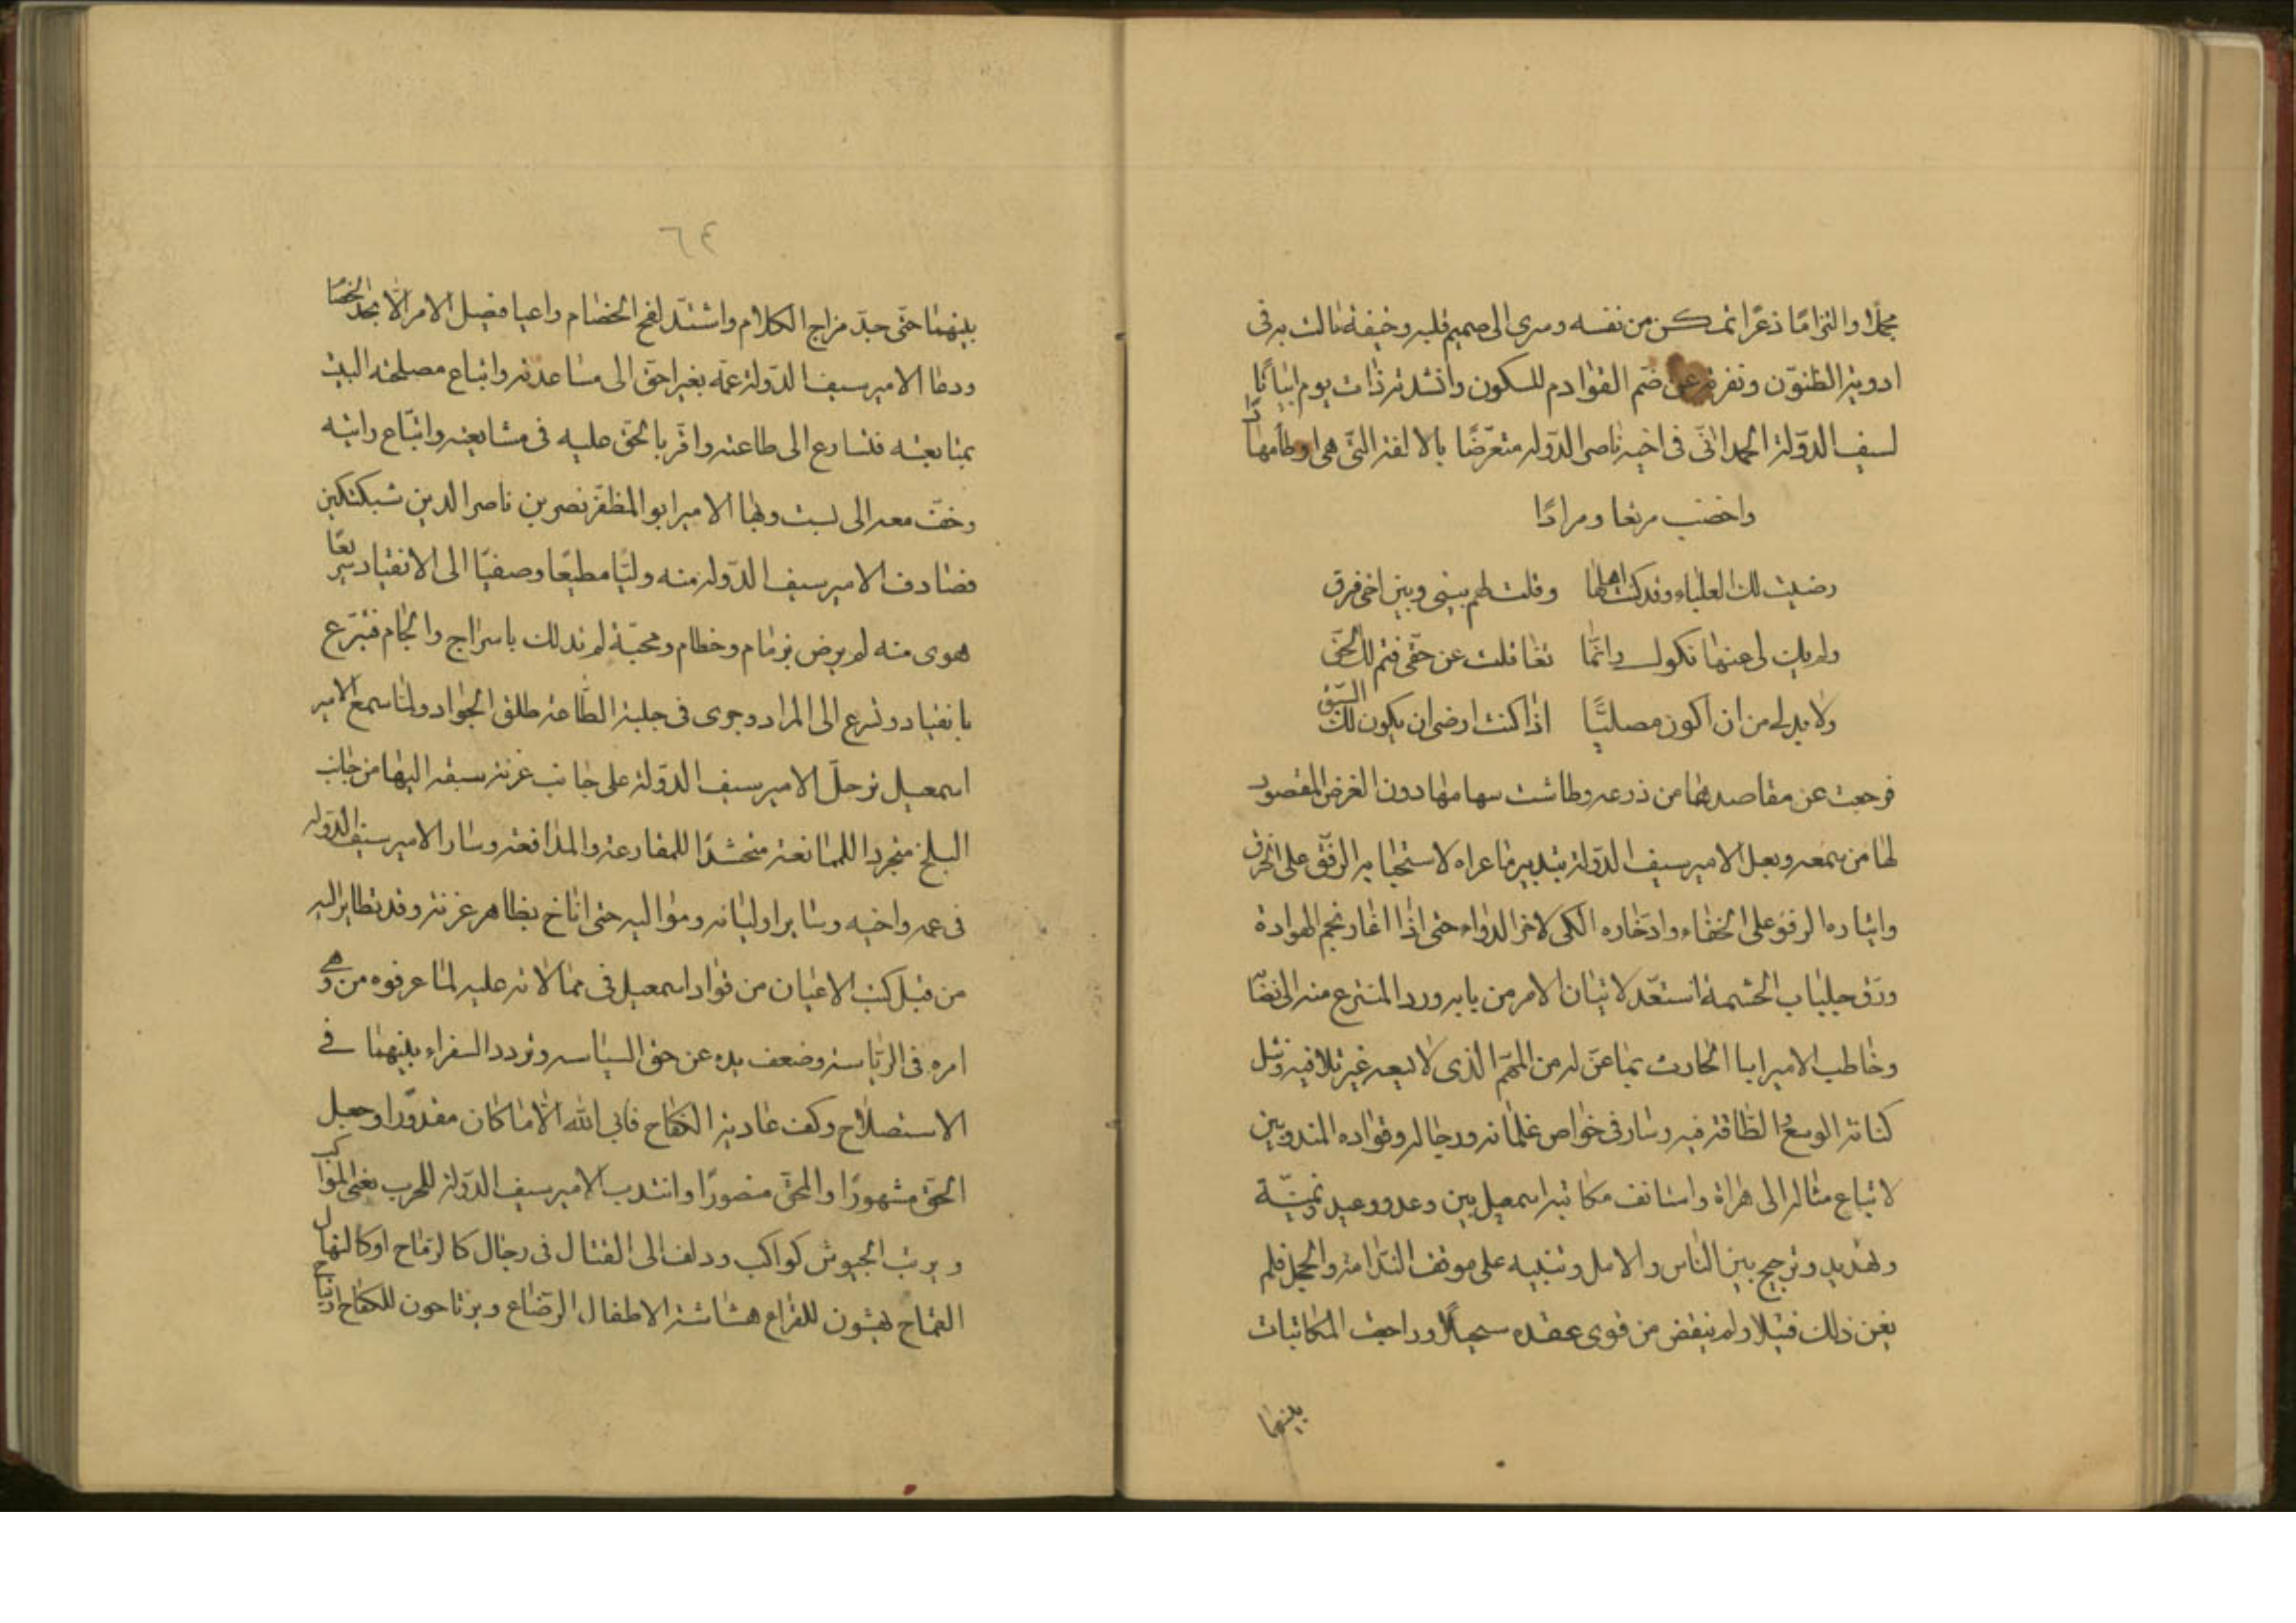 مجملا والتزامًا ذعرًا تمكن من نفسه وسرى الى صميم قلبه وخيفة مالت به فى
ادوية الظنون وتفرقه عن ضم القوادم للسكون وانشدته ذات يوم ابياتًا
لسيف الدولة الحمدانى فى اخيه ناصر الدوله متعرّضًا بالالفة التى هى اوطأ مهادًا
واخصب مرتعا ومرادًا
رضيت لك العلياء وقد كنت اهلها وقلت لهم بينى وبين اخى فرق
ولم يك لى عنها نكول وانّما تغافلت عن حقّى فتم لك الحقّ
ولا بد لى من ان اكون مصليًّا اذا كنت ارضى ان يكون لك السّبق
فرجعت عن مقاصدها من ذرعه وطاشت سهامها دون الغرض المقصود
لها من سمعه وجعل الامير سيف الدولة بتدبير ما عراه لاستحبابه الرفق على الخرق
وايثاره الرفو على الخفاء وادخاره الكى لاخر الدواء حتى اذا اغار نجم الهوادة
ورق جلباب الحشمة استعدّ لاتيان الامر من بابه ورد المنتزع منه الى نصابه
وخاطب الامير ابا الحارث بما عنّ له من المهم الذى لا يسعه غير تلافيه ونثل
كنانة الوسع والطاقة فيه وسار فى خواص غلمانه ورجاله وقواده المندوبين
لاتباع مثاله الى هراة واستانف مكاتبة اسمعيل بين وعد ووعيد وتمنية
وتهديد وترجيح بين الناس والامل وتنبيه على موقف الندامة والخجل فلم
يغن ذلك فتيلا ولم ينقض من قوى عقده سحيلًا وراجعت المكاتبات
بينهما
٦٤
بينهما حتى جدّ مزاج الكلام واشتدّ لفح الخصام واعيا فيصل الامر الا بحد الحسام
ودعا الامير سيف الدولة عمّه بغراجق الى مساعدته واتباع مصلحته البيت
بمتابعته فتسارع الى طاعته واقرّ بالحقّ عليه فى مشايعته واتّباع رايته
وخفّ معه الى بست وبها الامير ابو المظفّر نصر بن ناصر الدين سبكتكين
فصادف الامير سيف الدوله منه وليًّا مطيعًا وصفيّا الى الانقياد سريعًا
هوى منه لم يرض بزمام وخطام ومحبّة لم تذلك باسراج والجام فتبرّع
بانقياد وتسرع الى المراد وجرى فى حلبة الطّاعة طلق الجواد ولما سمع الامير
اسمعيل ترحلّ الامير سيف الدولة على جانب غزنة سبقه اليها من جانب
البلخ متجردا للممانعة متحشدًا للمقارعة والمدافعة وسار الامير سيف الدوله
فى عمه واخيه وسائر اوليائه ومواليه حتى اناخ بظاهر غزنة وقد تطاير اليه
من قبل كتب الاعيان من قواد اسمعيل فى ممالاته عليه لما عرفوه من وهى
امره فى الرياسة وضعف يده عن حق السياسه وتردد السفراء بينهما فى
الاستصلاح وكف عادية الكفاح فابى الله الا ما كان مقدورًا وجعل
الحقّ مشهورًا والمحقّ منصورًا وانتدب الامير سيف الدولة للحرب يغشى المواكب
ويرتب الجيوش كواكب ودلف الى القتال فى رجال كالرماح او كالنهال
القماح يهشون للقراع هشاشة الاطفال للرضاع ويرتاحون للكفاح ارتياح